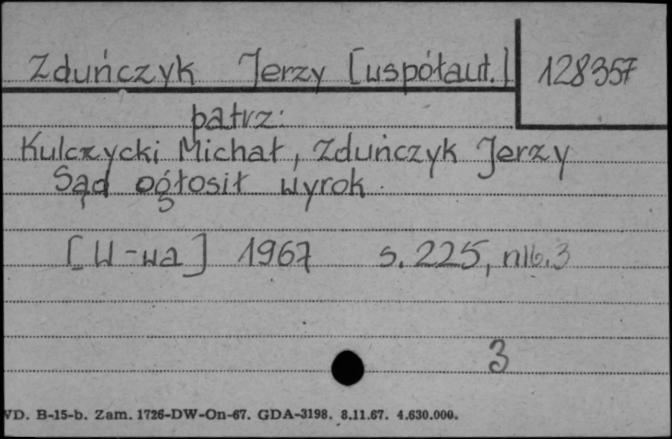 Zduńczyk Jerzy [współaut.] 128357
patrz:
Kulczycki Michał, Zduńczyk Jerzy
Sąd ogłosił wyrok.
[W-wa] 1967 s. 225, nlb. 3
3
VD. B-15-b. Zam. 1726-DW-On-67. GDA-3198. 8.11.67. 4.630.000.